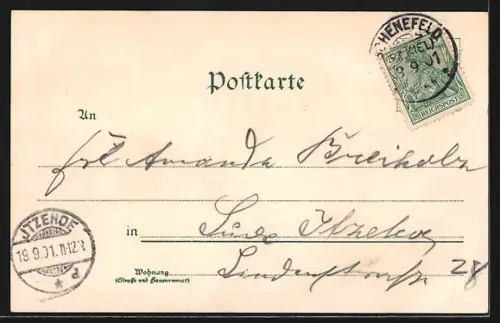 HENEFELD
9.01
REICHSPOST
Postkarte
An
Frl Amanda Breiholz
in
Itzehoe
ITZEHOE
19.9.01.11-12V
Wohnung
(Straße und Hausnummer)
Lindenstrasse 28